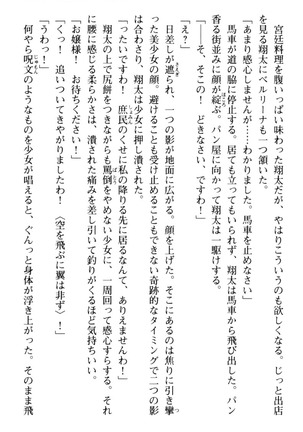 宮廷料理を腹いっぱい味わった翔太だが、やはりこういうのも欲しくなる。じっと出店
を見る翔太にベルリーナも一つ頷いた。
「あまり感心しませんが……わかりました。馬車を止めなさい」
馬車が道の脇に停止する。居ても立ってもいられず、翔太は馬車から飛び出した。パン
香る街並みに顔が綻ぶ。パン屋に向かって翔太は一駆けする。
「──そ、そこの！ どきなさい、ですわ！」
「え？」
日差しが遮られ、一つの影が地面に広がる。顔を上げた。そこにあるのは焦りに引き攣
った美少女の顔。避けることも受け止めることもできない奇跡的なタイミングで二つの影
は合わさり、翔太は少女に押し潰された。
「ったいですわ！ 庶民のくせに私の降りる先に居るなんて、ありえませんわ！」
翔太の上で尻餅をつきながらも罵倒をやめない少女に、一周回って感心すらする。それ
に腰に感じる柔らかさは、潰された痛みを差し引いて釣りがくるほど気持ちいい。
「お嬢様！ お待ちください！」
「くっ！ 追いついてきやがりましたわ！ 〈空を飛ぶに翼は非ず〉！」
「うわっ！」
何やら呪文のようなものを少女が唱えると、ぐんっと身体が浮き上がった。そのまま飛